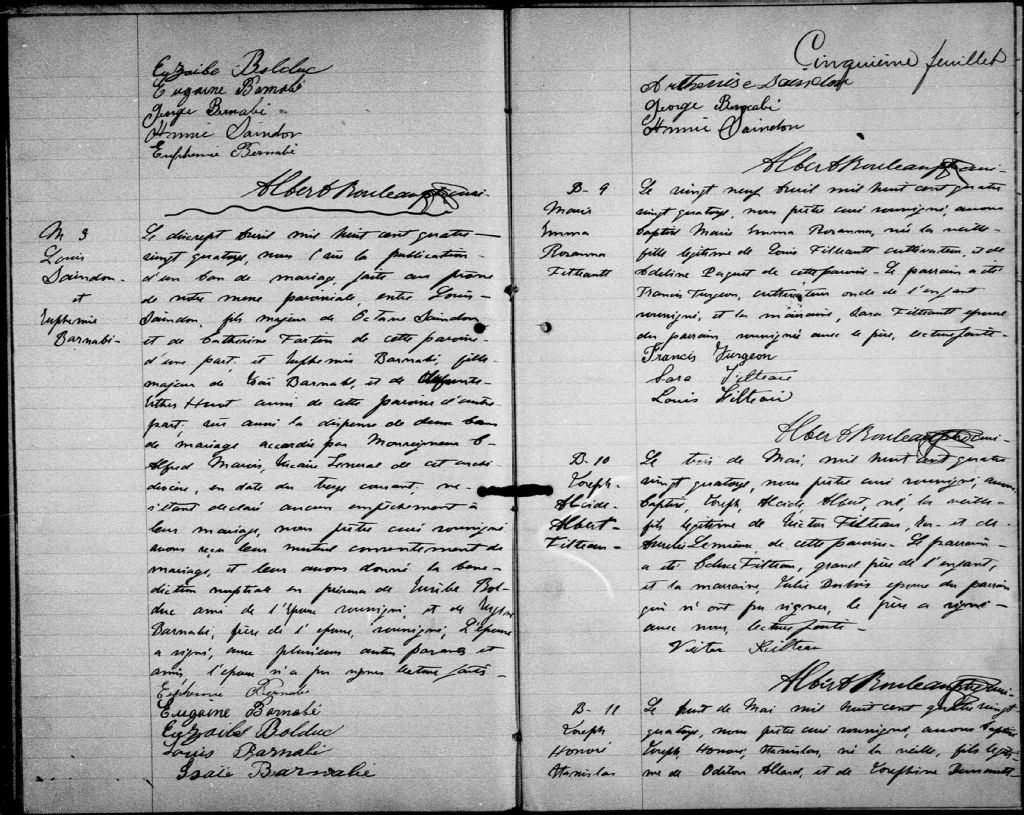 Eugaine Barnabé
George Barnabé
Annie Saindon
Euphemie Barnabé
Albert Rouleau ptre curé
M 3
Louis
Saindon
et
Euphemie
Barnabé
Le dix sept Avril mil huit cent quatre
vingt quatorze, nous vu la publication
d'un ban de mariage, faite au prone
de notre messe paroissiale, entre Louis
Saindon, fils majeur de Octave Saindon
et de Catherine de cette paroisse
d'une part, et Euphemie Barnabé, fille
majeure de Barnabé, et de defunte
Esther Hunt aussi de cette paroisse d'autre
part, vu aussi la dispense de deux bans
de mariage accordée par Monseigneur C
Alfred Marois, Vicaire General de cet archi
diocèse, en date du treize courant, ne
s'étant declaré aucun empêchement à
leur mariage, nous prêtre curé soussigné
avons reçu leur mutuel consentement de
mariage, et leur avons donné la béné
diction nuptiale en présence de Bol
duc ami de l'Epoux soussigné et de
Barnabé, frère de l'epouse, soussigné, L'épouse
a signé, avec plusieurs autres parents et
amis l'epoux n'a pu signer lecture faite
Euphemie Barnabé
Eugaine Barnabé
Bolduc
Louis Barnabé
Isaïe Barnabé
Cinquième feuillet
Arthenise Saindon
George Barnabé
Annie Saindon
Albert Rouleau ptre curé
B- 9
Marie
Emma
Rosanna
Filteault
Le vingt neuf Avril mil huit cent quatre
vingt quatorze, nous prêtre curé soussigné, avons
baptisé Marie Emma Rosanna, née la veille
fille legitime de Louis Filteault cultivateur, et de
Adeline Paquet de cette paroisse - Le parrain a été
Francis Turgeon, cultivateur oncle de l'enfant
soussigné, et la marraine, Sara Filteault epouse
du parrain, soussignée avec le père, lecture faite -
Francis Turgeon
Sara Filteau
Louis Filteau
Albert Rouleau ptre curé
B- 10
Joseph-
Alcide-
Albert-
Filteau-
Le trois de Mai, mil huit cent quatre
vingt quatorze, nous prêtre curé soussigné, avons
baptisé, Joseph, Alcide, Albert, né, la veille
fils legitime de Victor Filteau, et de
Aurelie Lemieux, de cette paroisse - Le parrain
a été Filteau, grand père de l'enfant,
et la marraine, Julie Dubois epouse du parrain
qui n'ont pu signer, le père a signé
avec nous, lecture faite -
Victor Filteau
Albert Rouleau ptre curé
B- 11
Joseph
Honoré
Stanislas
Le huit de Mai mil huit cent quatre vingt
quatorze, nous prêtre curé soussigné, avons baptisé
Joseph, Honoré, Stanislas, né la veille, fils legiti
me de Odilon Allard, et de Josephine